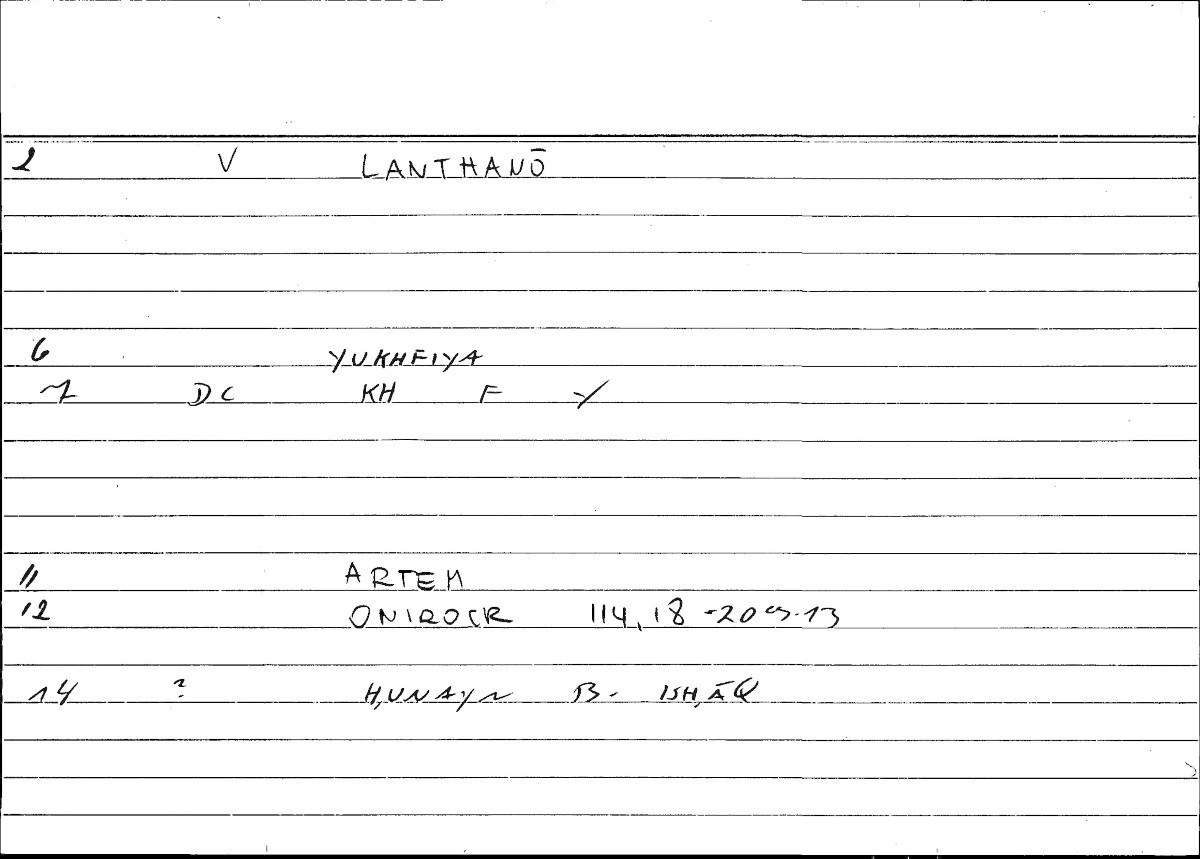 2 V LANTHANŌ
6 YUKHFIYA
7 DC KH F Y
11 ARTEM
12 ONIROCR 114,18-20
14 ? H,UNAYN B. ISH,ĀQ